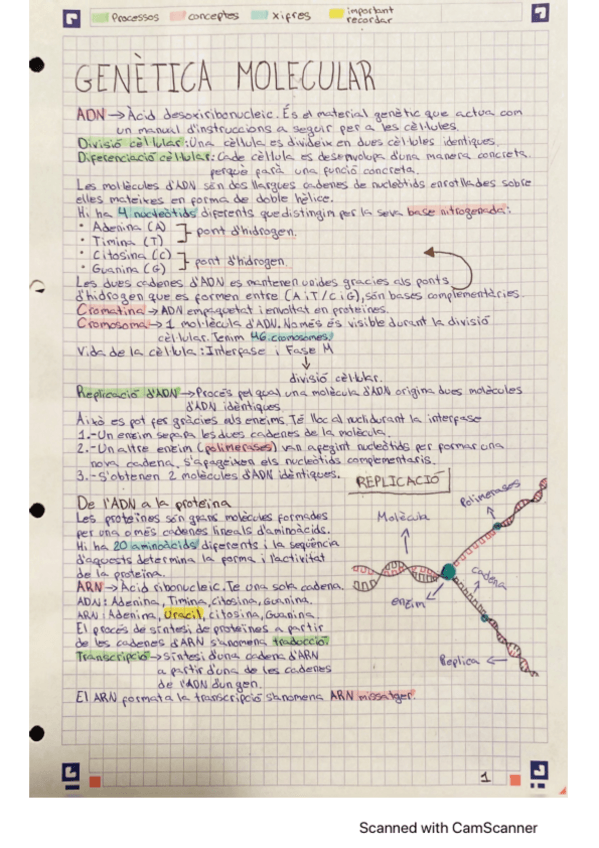 Processos conceptes xifres important recordar
GENÈTICA MOLECULAR
ADN → Àcid desoxiribonucleic. És el material genètic que actua com
un manual d'instruccions a seguir per a les cèl·lules.
Divisió cèl·lular: Una cèl·lula es divideix en dues cèl·lules idèntiques.
Diferenciació cèl·lular: Cade cèl·lula es desenvolupa d'una manera concreta.
perquè farà una funció concreta.
Les mol·lècules d'ADN són dos llargues cadenes de nucleòtids enrotllades sobre
elles mateixes en forma de doble hèlice.
Hi ha 4 nucleòtids diferents que distingin per la seva base nitrogenada:
• Adenina (A)
• Timina (T)
pont d'hidrogen.
• Citosina (C)
• Guanina (G)
pont d'hidrogen.
Les dues cadenes d'ADN es mantenen unides gracies als ponts
d'hidrogen que es formen entre (A i T / C i G), són bases complementàries.
Cromatina → ADN empaquetat i envoltat en proteïnes.
Cromosoma → 1 mol·lècula d'ADN. Només és visible durant la divisió
cèl·lular. Tenim 46 cromosomes.
Vida de la cèl·lula: Interfase i Fase M
↓
divisió cèl·lular.
Replicació d'ADN → Procés pel qual una molècula d'ADN origina dues molècules
d'ADN idèntiques
Això es pot fer gràcies als enzims. Té lloc al nucli durant la interfase
1.- Un enzim separa les dues cadenes de la molècula
2.- Un altre enzim (polimerases) van afegint nucleòtids per formar una
nova cadena. S'apageixen els nucleòtids complementaris.
3.- S'obtenen 2 molècules d'ADN idèntiques.
REPLICACIÓ
De l'ADN a la proteïna
Les proteïnes són grans molècules formades
per una o més cadenes lineals d'aminoàcids.
Hi ha 20 aminoàcids diferents i la seqüència
d'aquests determina la forma i l'activitat
de la proteïna.
ARN → Àcid ribonucleic. Te una sola cadena.
ADN: Adenina, Timina, citosina, Guanina.
ARN: Adenina, Uracil, citosina, Guanina.
El procés de síntesi de proteïnes a partir
de les cadenes d'ARN s'anomena traducció.
Transcripció → síntesi d'una cadena d'ARN
a partir d'una de les cadenes
de l'ADN d'un gen.
El ARN format a la transcripció s'anomena ARN missatger.
Polimerases
Molècula
cadena
enzim
Replica
1
Scanned with CamScanner